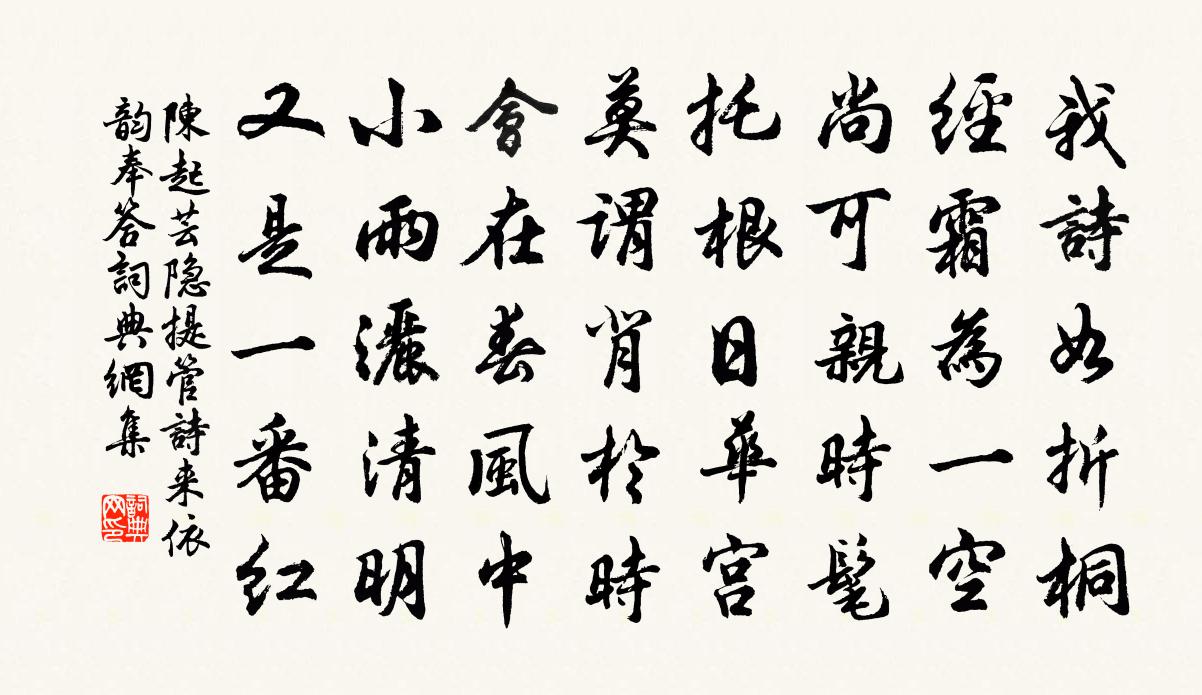 我詩如折桐
經霜為一空
尚可親時髦
托根日華宮
莫謂肖於時
會在春風中
小雨灑清明
又是一番紅
陳起芸隐提管詩来依
韵奉答詞典網集
詞典網印